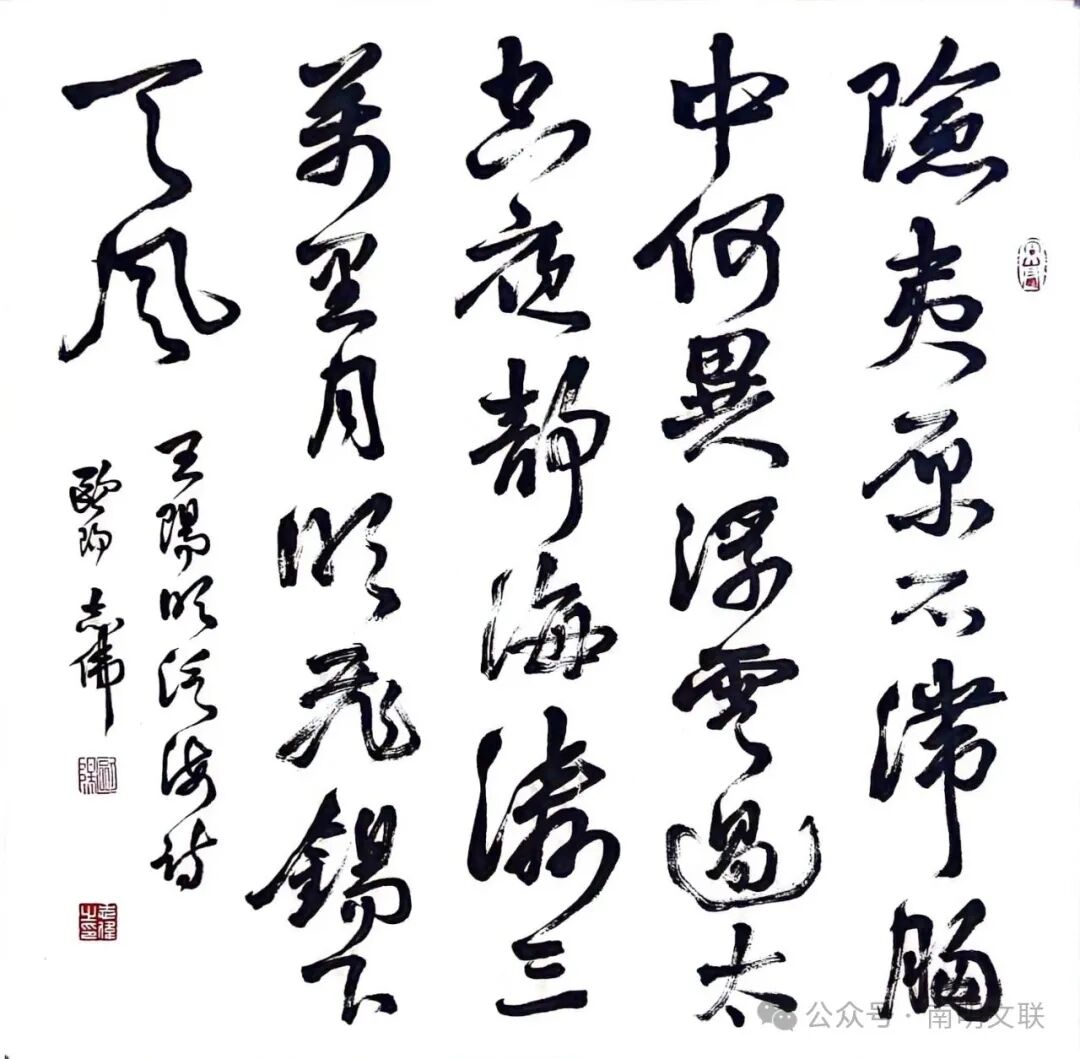 險夷原不滯胸
中何異浮雲過太
空夜靜海濤三
萬里月明飛錫下
天風
王陽明泛海詩
歐陽志偉
志偉之印
公众号 · 南明文联